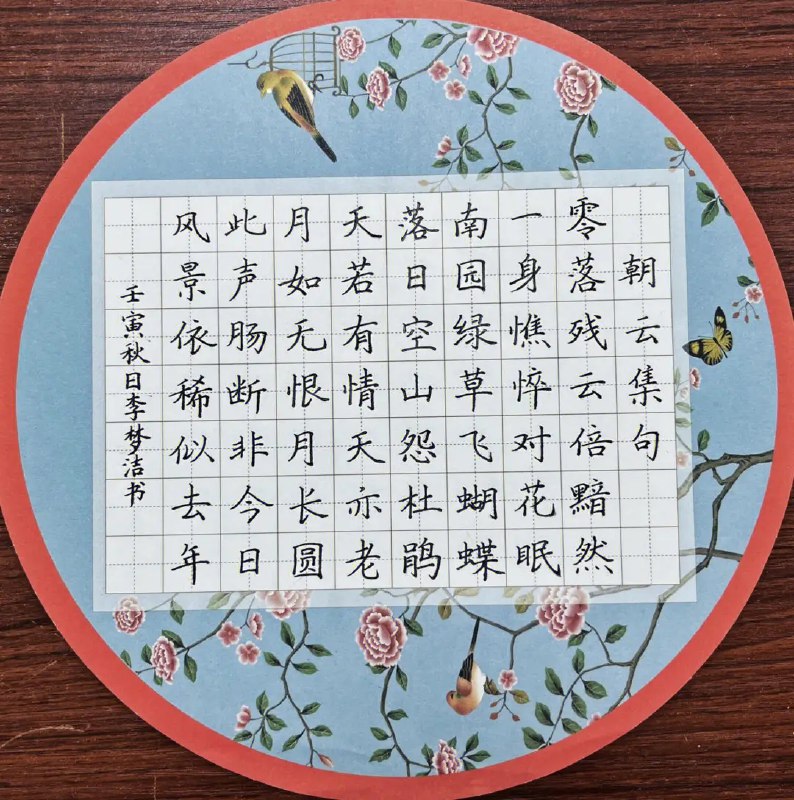 朝云集句
零落残云倍黯然
一身憔悴对花眠
南园绿草飞蝴蝶
落日空山怨杜鹃
天若有情天亦老
月如无恨月长圆
此声肠断非今日
风景依稀似去年
壬寅秋日李梦洁书